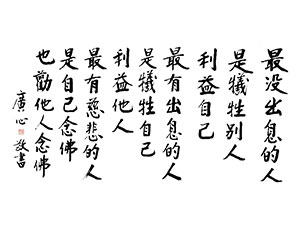 最没出息的人
是犧牲別人
利益自己
最有出息的人
是犧牲自己
利益他人
最有慈悲的人
是自己念佛
也勸他人念佛
廣心敬書